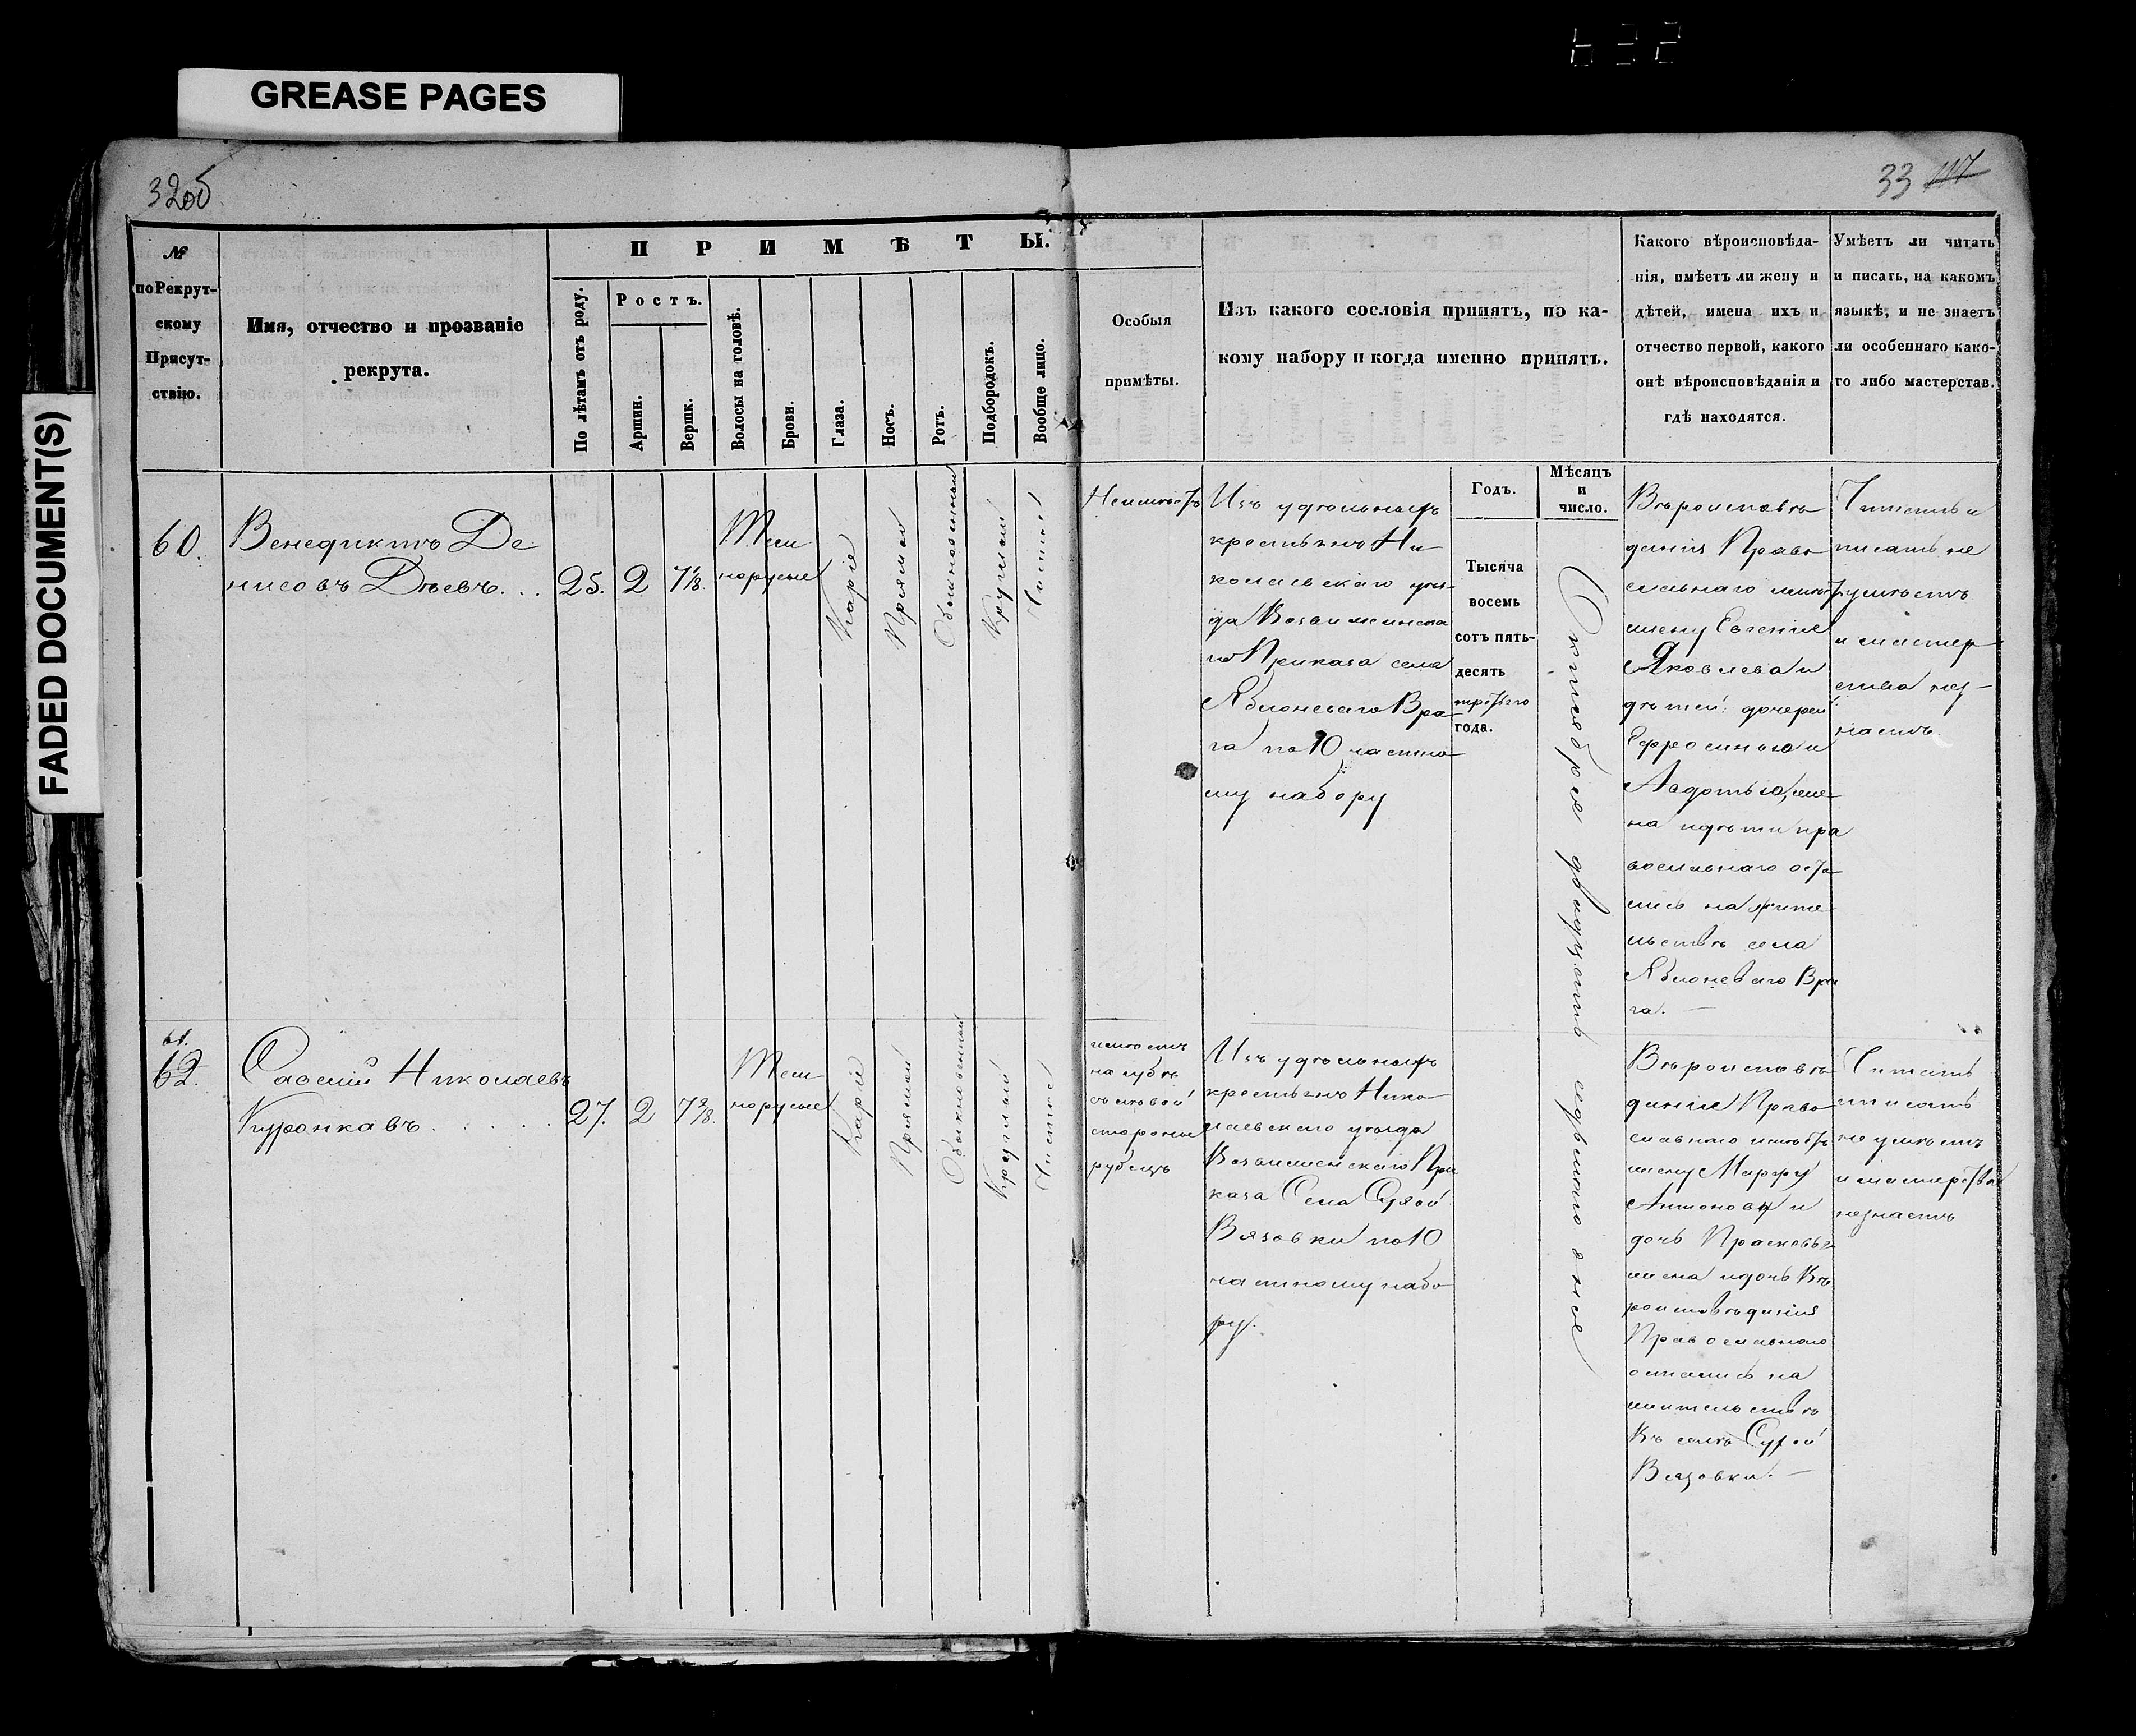 GREASE PAGES
FADED DOCUMENT(S)
32об
33 117
№
по Рекрут-
скому
Присут-
ствію.
Имя, отчество и прозваніе
рекрута.
ПРИМѢТЫ.
По лѣтамъ отъ роду.
Ростъ.
Аршин.
Вершк.
Волосы на головѣ.
Брови.
Глаза.
Носъ.
Ротъ.
Подбородокъ.
Вообще лицо.
Особыя
примѣты.
Изъ какого сословія принятъ, по ка-
кому набору и когда именно принятъ.
Какого вѣроисповѣда-
нія, имѣетъ ли жену и
дѣтей, имена ихъ и
отчество первой, какого
онѣ вѣроисповѣданія и
гдѣ находятся.
Умѣетъ ли читать
и писать, на какомъ
языкѣ, и не знаетъ
ли особеннаго како-
го либо мастерстав.
Годъ.
Мѣсяцъ
и
число.
60.
Венедиктъ Де
нисовъ Дѣевъ...
25.
2
7 1/8.
Тем
норусые
Каріе
Прямой
Обыкновенный
Круглый
Чистое
Неимѣетъ
Изъ удѣльныхъ
крестьянъ Ни
колаевскаго уѣз-
да
го Приказа села
Яблоневаго Вра-
га по 10 частно-
му набору
Тысяча
восемь
сотъ пять-
десять
третьяго
года.
Октября двадцать седьмого дня
Вѣроисповѣ
данія Право
славнаго имѣетъ
жену Евгенію
Яковлева и
дѣтей: дочерей
Ефросинью и
Авдотью, же-
на и дѣти пра
вославнаго оста
лись на жите-
льствѣ села
Яблоневаго Вра
га. —
Читать и
писать не
умѣетъ
и мастер
ства нез-
наетъ.
61.
62.
Савелій Николаевъ
Куронкавъ.....
27.
2
7 2/8.
Тем
норусые
Каріе
Прямой
Обыкновенный
Круглый
Чистое
имѣетъ
на губѣ
съ лѣвой
стороны
рубецъ
Изъ удѣльныхъ
крестьянъ Нико
лаевскаго уѣзда
Возвышенскаго При
каза Села Сухой
Вязовки по 10
частному набо
ру.
Вѣроисповѣ
даніе Право
славнаго имѣетъ
жену Марфу
Антонову и
дочь Прасковья
жена и дочь Вѣ
роисповѣданія
Православнаго
остались на
жительствѣ
Въ селѣ Сухой
Вязовки. —
Читать
и писать
не умѣетъ
и мастерства
незнаетъ